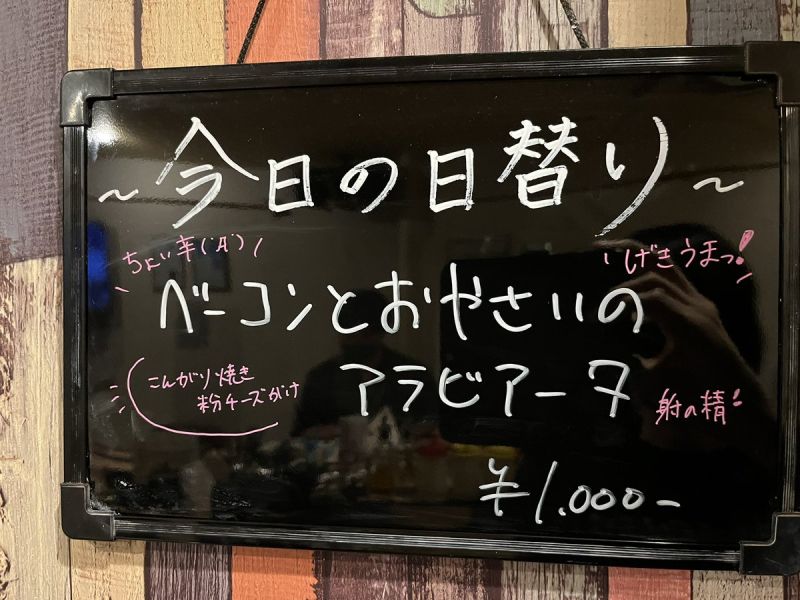 ~今日の日替り~
ちょい辛(°Д°)
げきうまっ!
ベーコンとおやさいの
こんがり焼き
粉チーズがけ
アラビアータ
¥1.000-